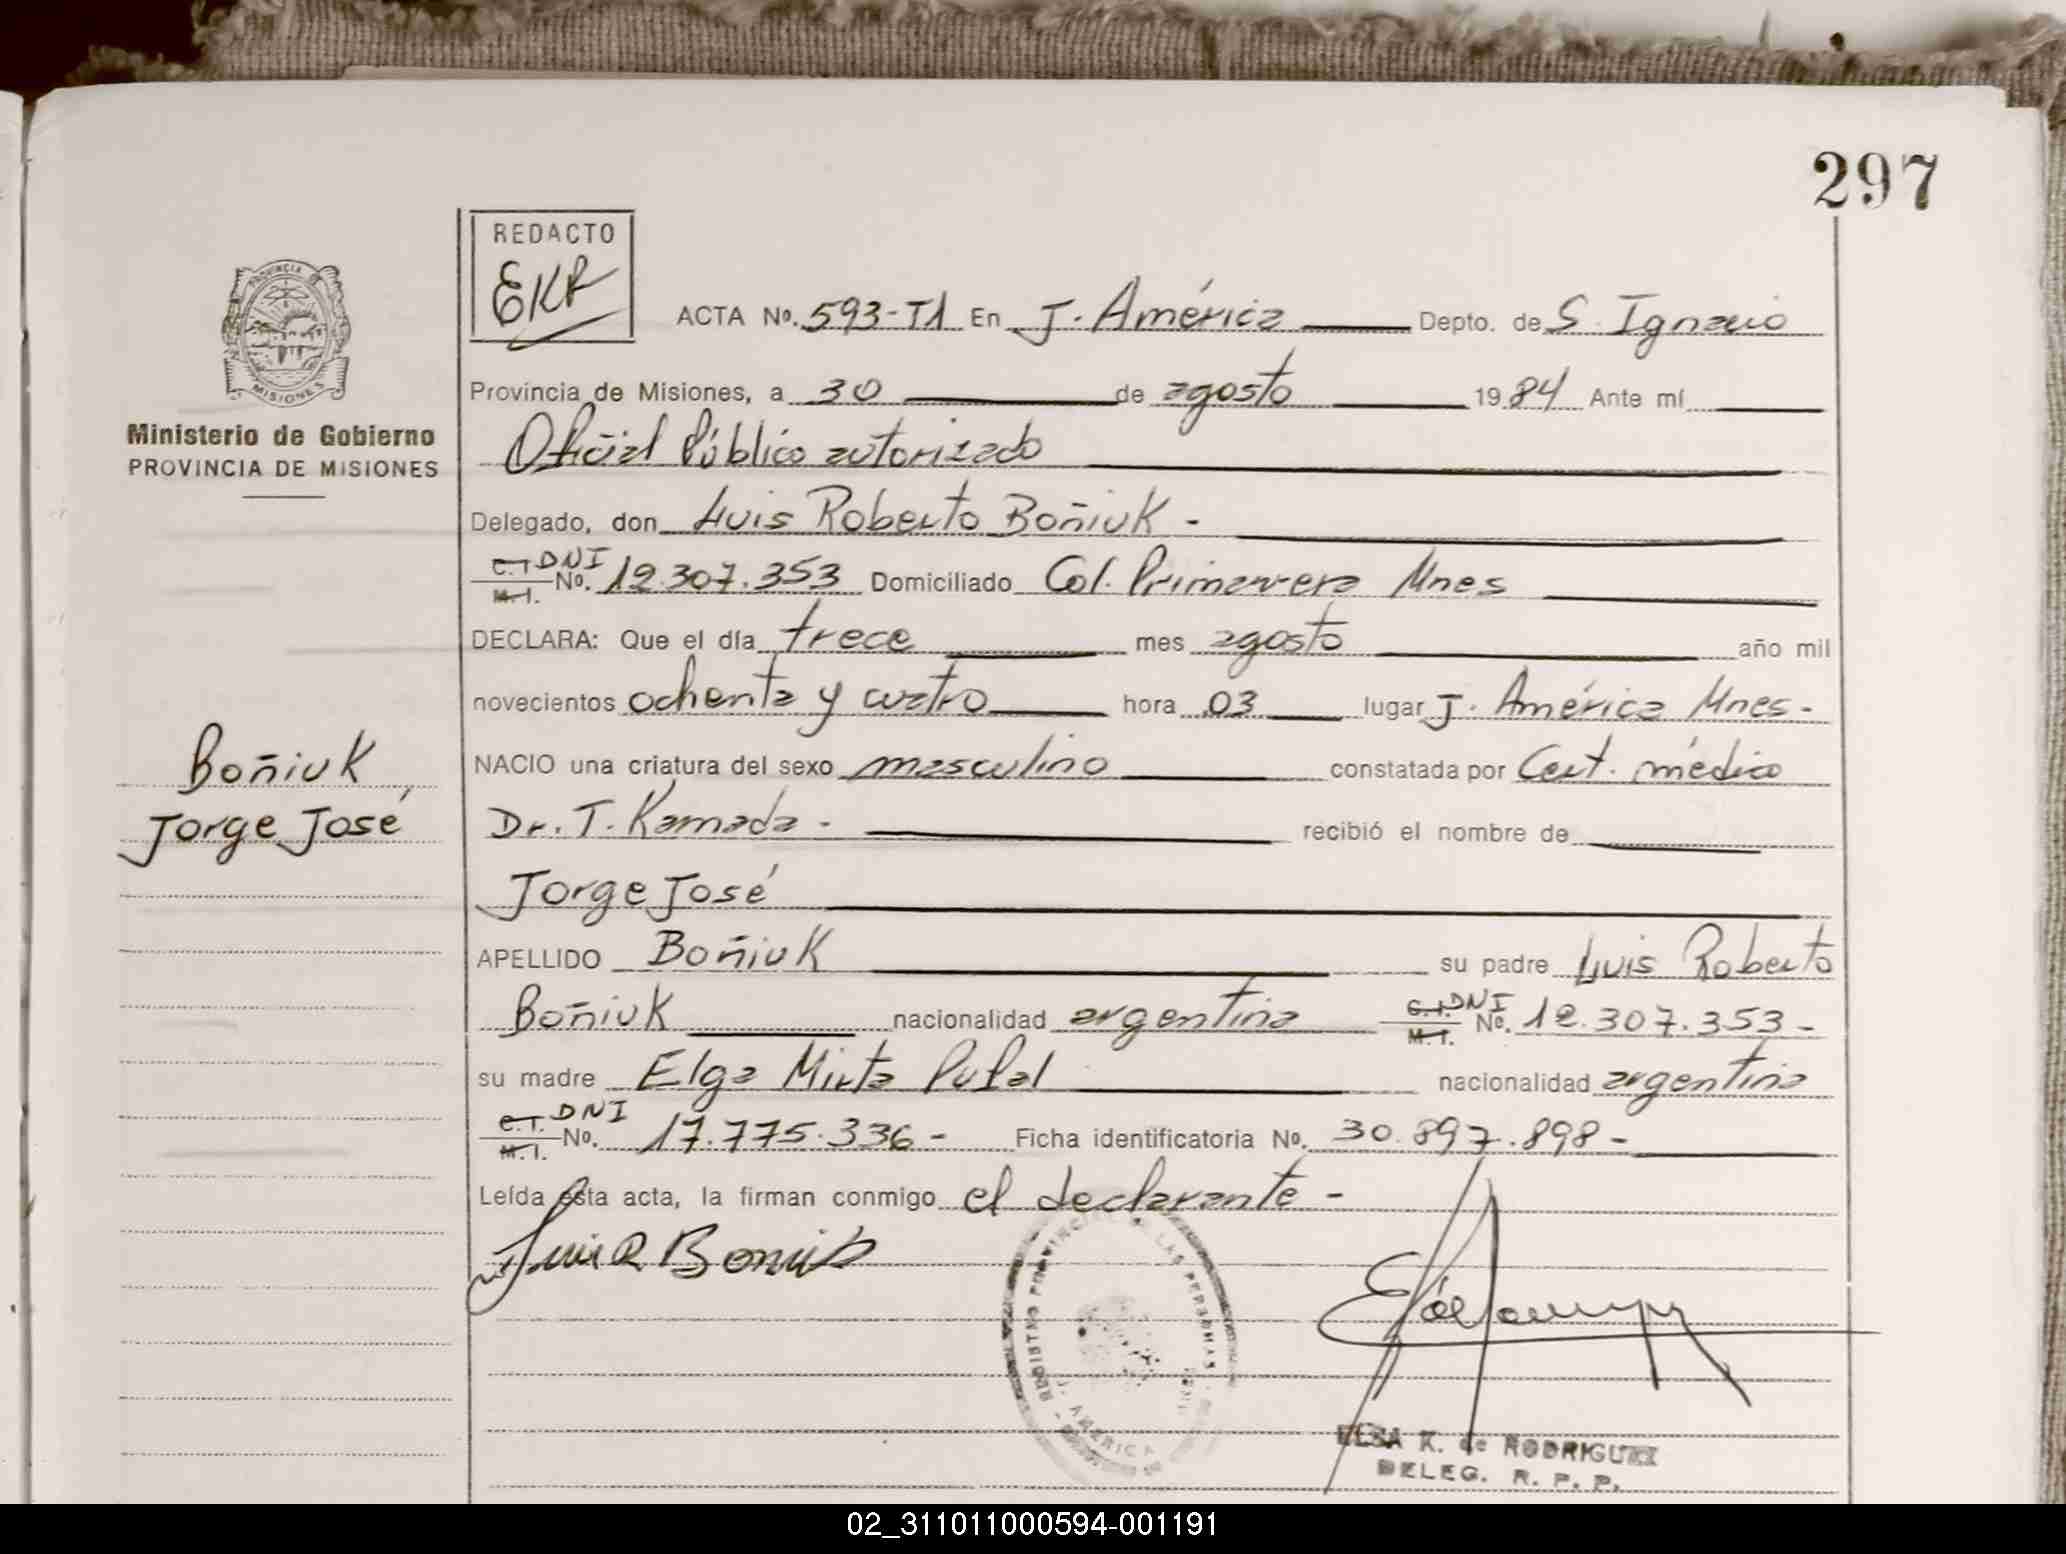 297
REDACTO
EKR
ACTA Nº. 593-T1 En J. América Depto. de S. Ignacio
Provincia de Misiones, a 30 de agosto 1984 Ante mí
Oficial Público autorizado
PROVINCIA DE MISIONES
Ministerio de Gobierno
PROVINCIA DE MISIONES
Delegado, don Luis Roberto Boñiuk -
C.I. DNI M.I. Nº. 12.307.353 Domiciliado Col. Primavera Mnes
DECLARA: Que el día trece mes agosto año mil
novecientos ochenta y cuatro hora 03 lugar J. América Mnes-
NACIO una criatura del sexo masculino constatada por Cert. médico
Boñiuk
Jorge José
Dr. T. Kamada - recibió el nombre de
Jorge José
APELLIDO Boñiuk su padre Luis Roberto
Boñiuk nacionalidad argentina C.I. DNI M.I. Nº. 12.307.353-
su madre Elga Mirta Pufal nacionalidad argentina
C.I. DNI M.I. Nº. 17.775.336- Ficha identificatoria Nº. 30.897.898-
Leída esta acta, la firman conmigo el declarante -
Luis R Boniuk
REGISTRO PROVINCIAL DE LAS PERSONAS
J. AMERICA
ELSA K. de RODRIGUEZ
DELEG. R. P. P.
02_311011000594-001191